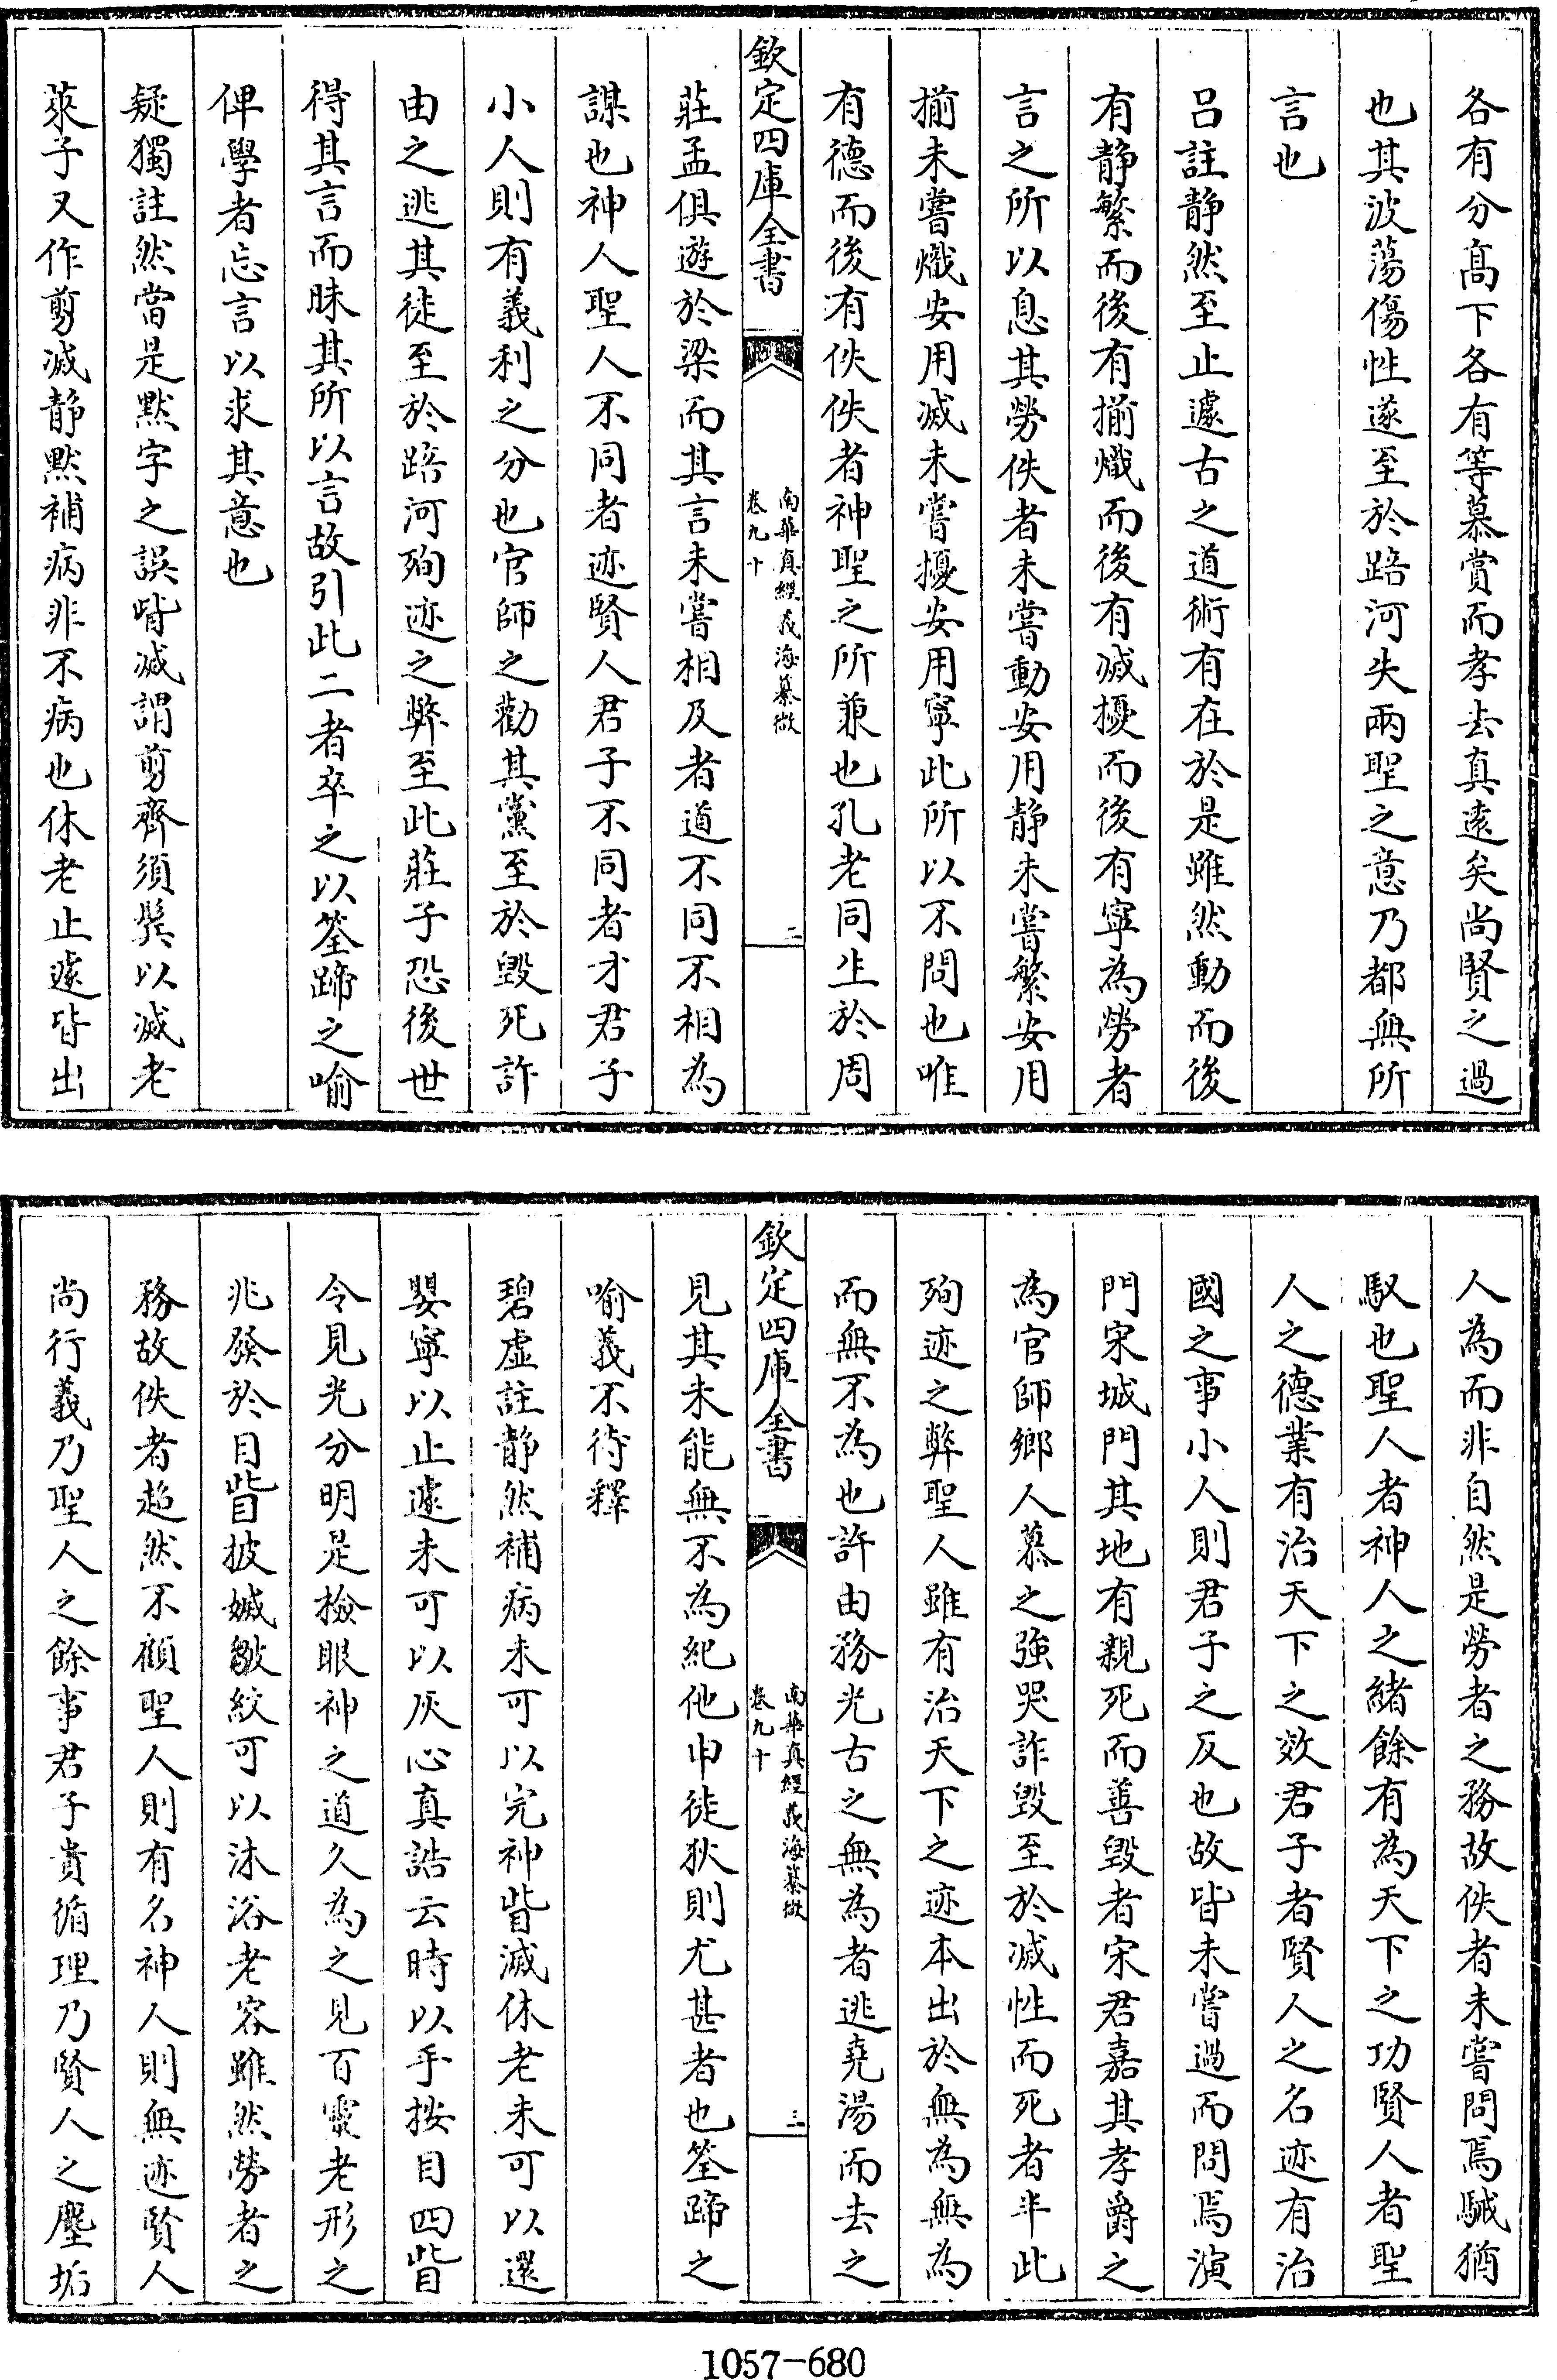 各有分髙下各有等慕賞而孝去真逺矣尚賢之過
也其波蕩傷性遂至於踣河失兩聖之意乃都無所
言也
吕註静然至止遽古之道術有在於是雖然動而後
有静繁而後有揃㸅而後有㓕擾而後有寧為勞者
言之所以息其勞佚者未嘗動安用静未嘗繁安用
揃未嘗熾安用滅未嘗擾安用寧此所以不問也唯
有徳而後有佚佚者神聖之所兼也孔老同生於周
欽定四庫全書
南華真經義海纂微
卷九十
二
莊孟俱遊於梁而其言未嘗相及者道不同不相為
謀也神人聖人不同者迹賢人君子不同者才君子
小人則有義利之分也官師之勸其黨至於毁死許
由之逃其徒至於踣河殉迹之弊至此莊子恐後世
得其言而昧其所以言故引此二者卒之以筌蹄之喻
俾學者忘言以求其意也
疑獨註然當是黙字之誤眥滅謂剪齊須髮以滅老
萊子又作剪滅静黙補病非不病也休老止遽皆出
人為而非自然是勞者之務故佚者未嘗問焉駴猶
馭也聖人者神人之緒餘有為天下之功賢人者聖
人之徳業有治天下之效君子者賢人之名迹有治
國之事小人則君子之反也故皆未嘗過而問焉演
門宋城門其地有親死而善毁者宋君嘉其孝爵之
為官師鄉人慕之強哭詐毁至於滅性而死者半此
殉迹之弊聖人雖有治天下之迹本出於無為無為
而無不為也許由務光古之無為者逃堯湯而去之
欽定四庫全書
南華真經義海纂微
卷九十
三
見其未能無不為紀他申徒狄則尤甚者也筌蹄之
喻義不待釋
碧虚註静然補病未可以完神眥滅休老未可以還
嬰寧以止遽未可以灰心真誥云時以手按目四眥
令見光分明是檢眼神之道久為之見百靈老形之
兆發於目眥披媙皺紋可以沐浴老容雖然勞者之
務故佚者超然不顧聖人則有名神人則無迹賢人
尚行義乃聖人之餘事君子貴循理乃賢人之塵垢
1057-680